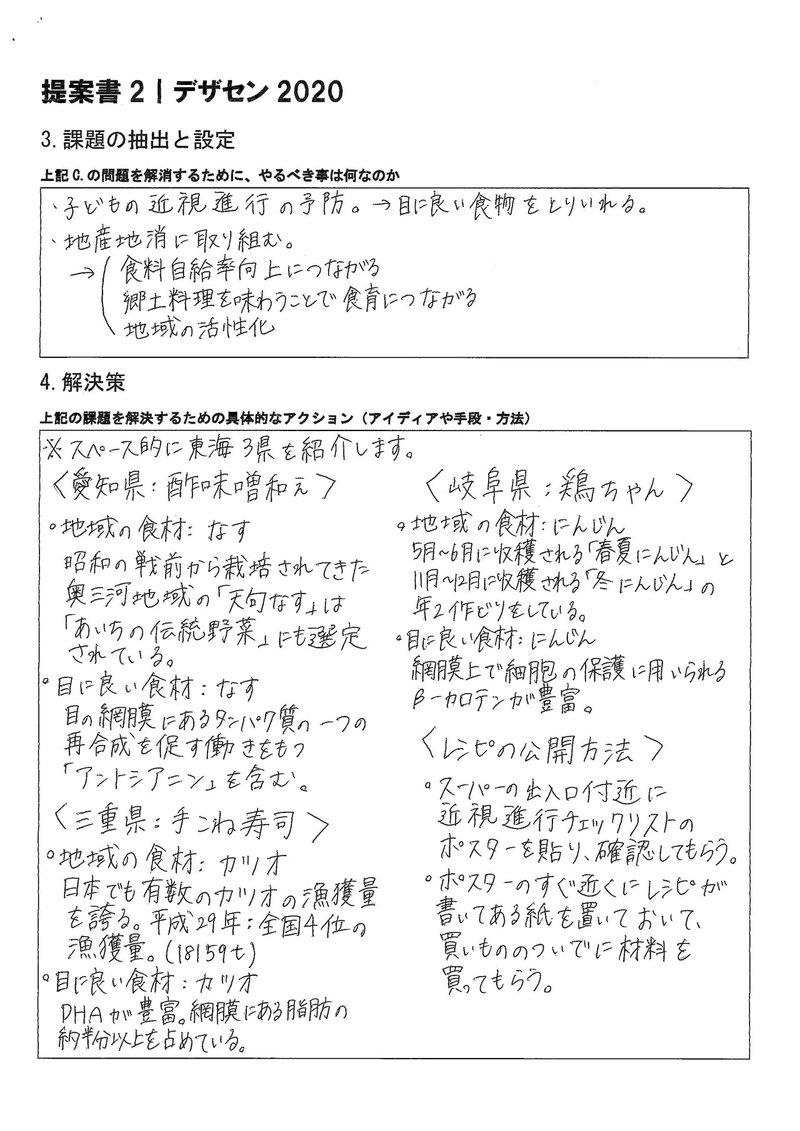 提案書 2｜デザセン 2020
3. 課題の抽出と設定
上記 C. の問題を解消するために、やるべき事は何なのか
・子どもの近視進行の予防。→目に良い食物をとりいれる。
・地産地消に取り組む。
→( 食料自給率向上につながる
郷土料理を味わうことで食育につながる
地域の活性化
4. 解決策
上記の課題を解決するための具体的なアクション（アイディアや手段・方法）
※スペース的に東海3県を紹介します。
〈愛知県：酢味噌和え〉
○地域の食材：なす
昭和の戦前から栽培されてきた
奥三河地域の「天狗なす」は
「あいちの伝統野菜」にも選定
されている。
○目に良い食材：なす
目の網膜にあるタンパク質の一つの
再合成を促す働きをもつ
「アントシアニン」を含む。
〈三重県：手こね寿司〉
○地域の食材：カツオ
日本でも有数のカツオの漁獲量
を誇る。平成29年：全国4位の
漁獲量。(18159t)
○目に良い食材：カツオ
DHAが豊富。網膜にある脂肪の
約半分以上を占めている。
〈岐阜県：鶏ちゃん〉
○地域の食材：にんじん
5月～6月に収穫される「春夏にんじん」と
11月～12月に収穫される「冬にんじん」の
年2作どりをしている。
○目に良い食材：にんじん
網膜上で細胞の保護に用いられる
β-カロテンが豊富。
〈レシピの公開方法〉
○スーパーの出入口付近に
近視進行チェックリストの
ポスターを貼り、確認してもらう。
○ポスターのすぐ近くにレシピが
書いてある紙を置いておいて、
買いもののついでに材料を
買ってもらう。